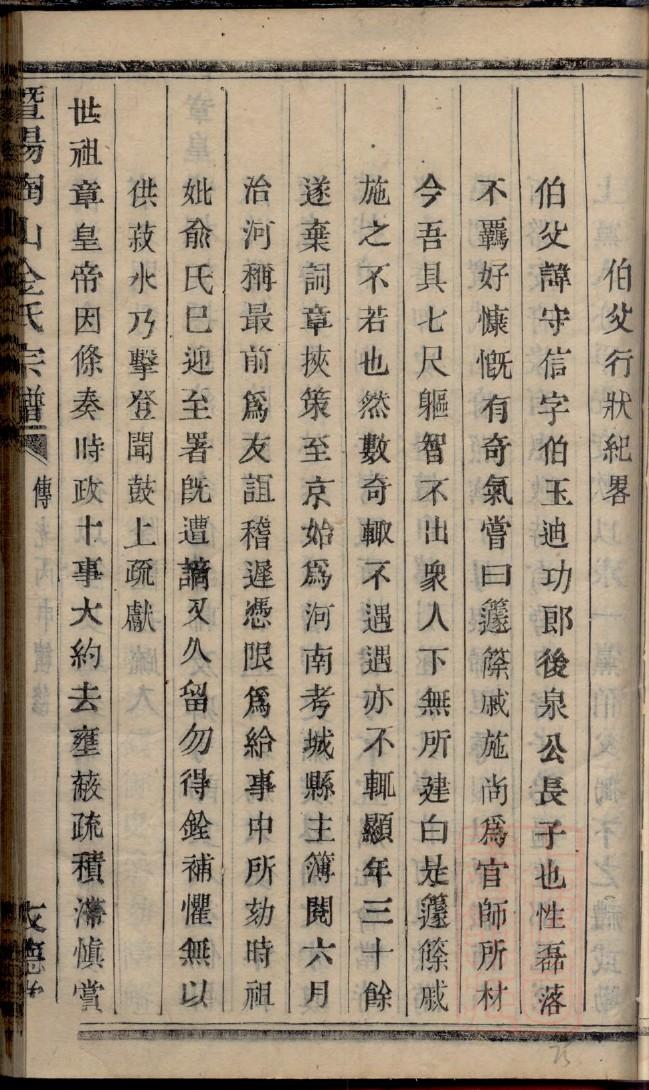 伯父行狀紀畧
伯父諱守信字伯玉迪功郎後泉公長子也性磊落
不羈好慷慨有奇氣嘗曰籧篨戚施尚爲官師所材
今吾具七尺軀智不出衆人下無所建白是籧篨戚
施之不若也然數奇輙不遇遇亦不輒顯年三十餘
遂棄詞章挾策至京始爲河南考城縣主簿閱六月
治河稱最前爲友詿稽遲憑限爲給事中所劾時祖
妣俞氏巳迎至署旣遭謫又久留勿得銓補懼無以
供菽水乃擊登聞鼓上疏獻
世祖章皇帝因條奏時政十事大約去壅蔽疏積滯愼賞
暨陽陶山金氏宗譜
傳